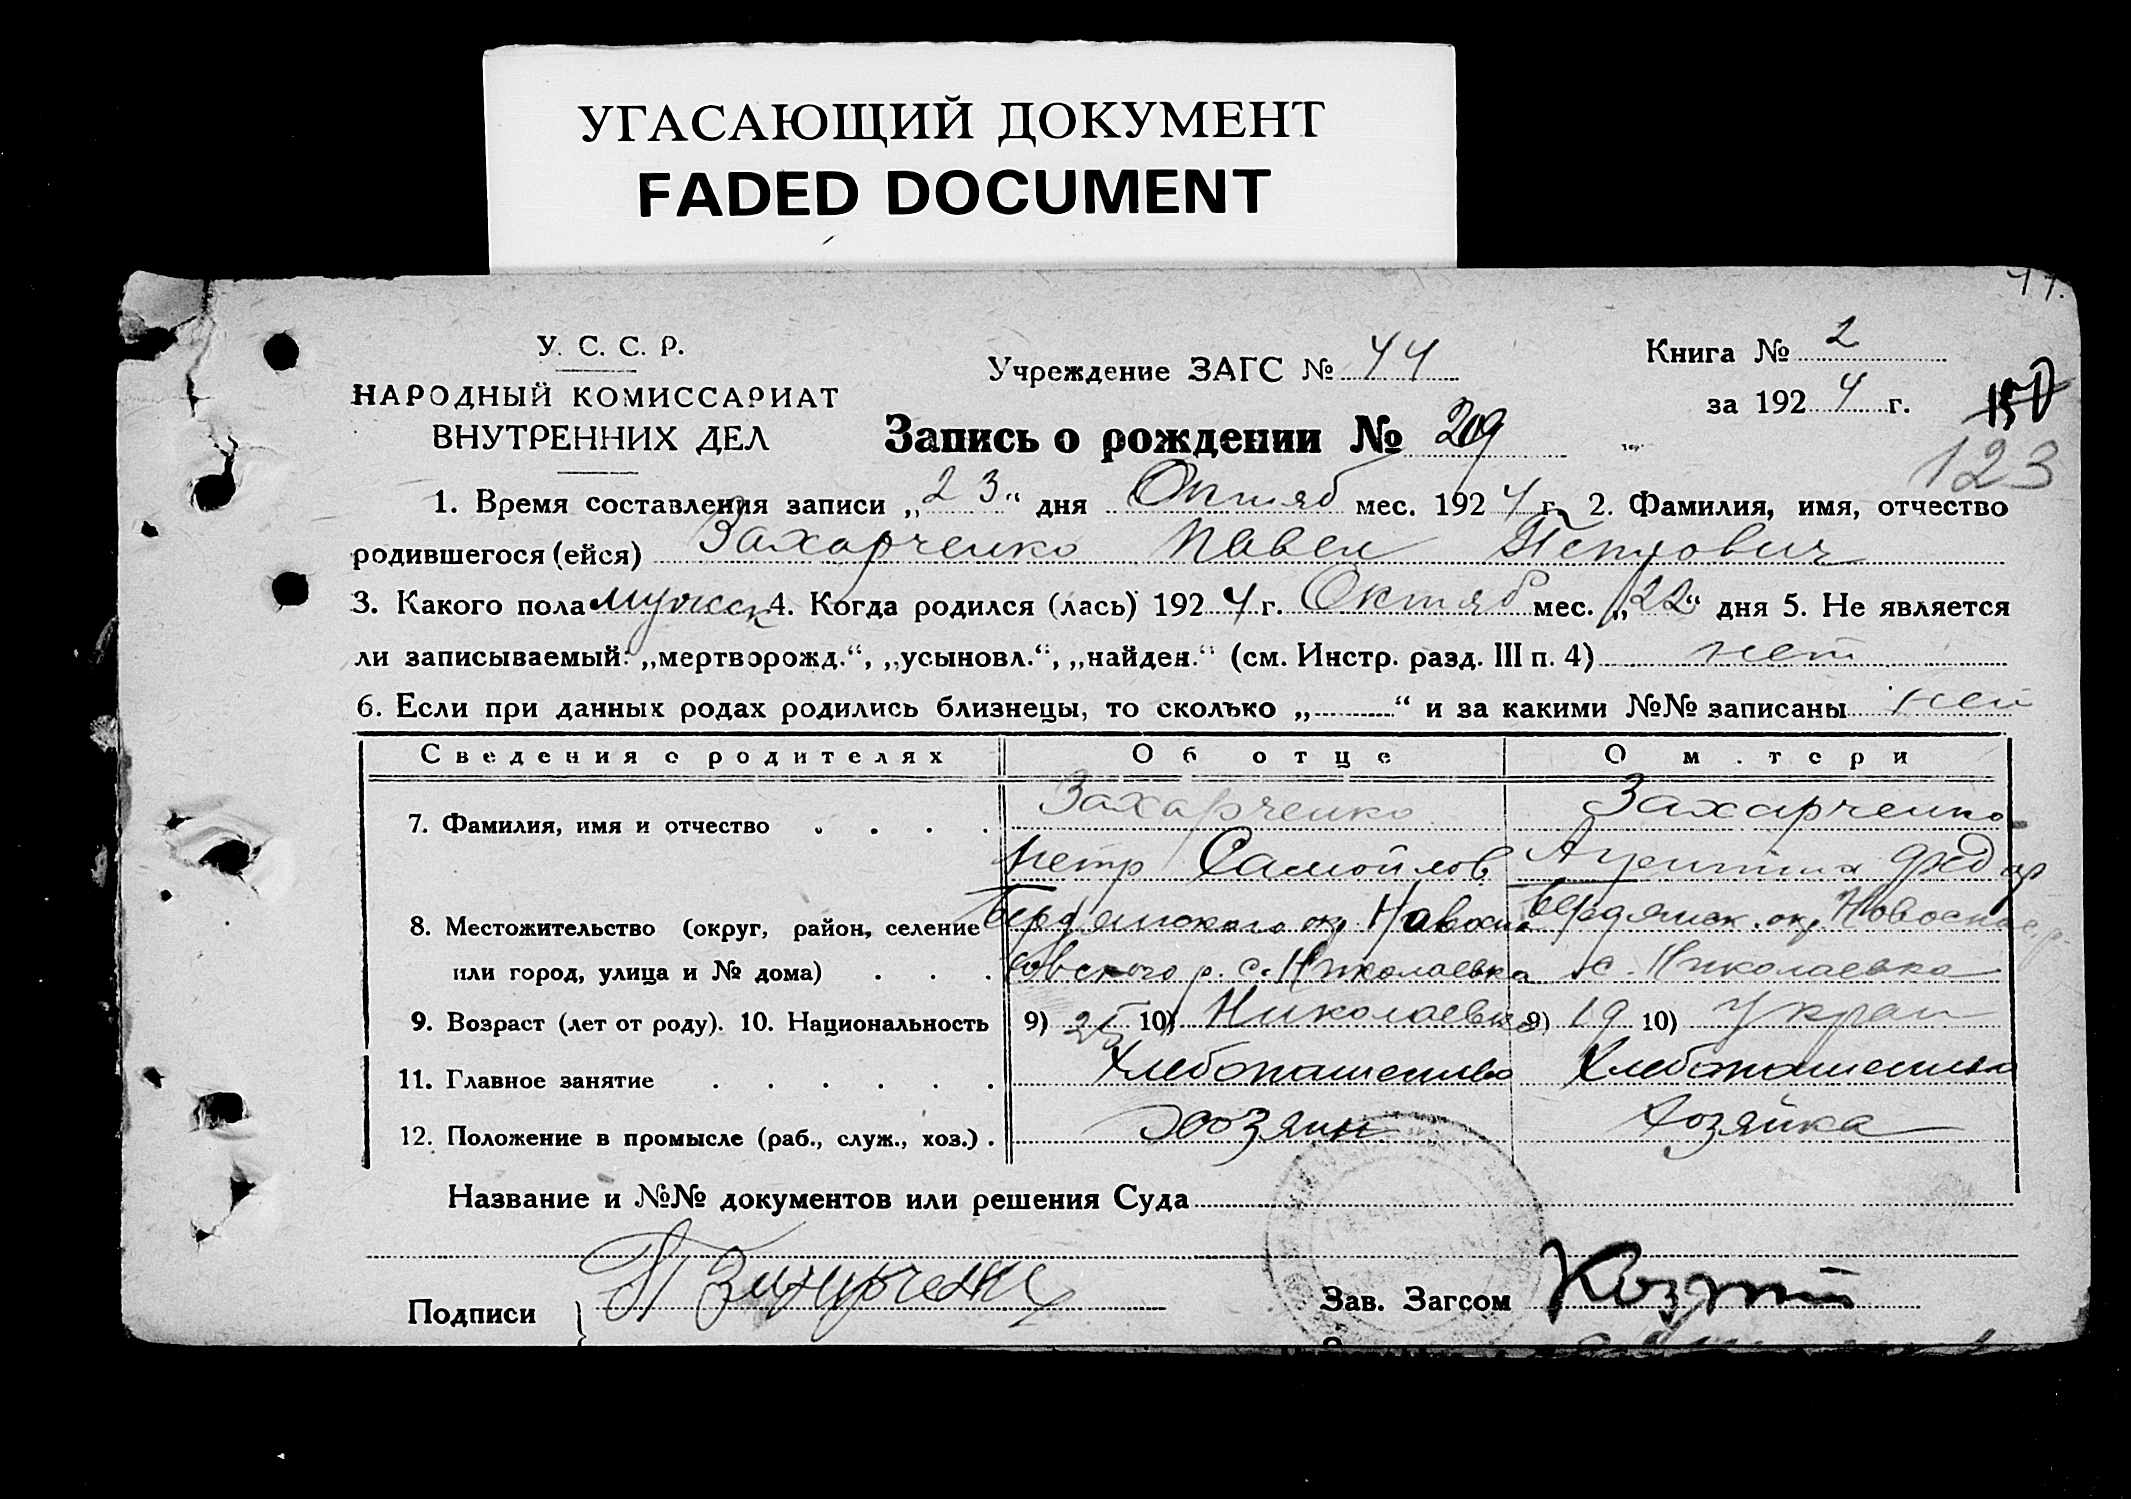 УГАСАЮЩИЙ ДОКУМЕНТ
FADED DOCUMENT
У. С. С. Р.
НАРОДНЫЙ КОМИССАРИАТ
ВНУТРЕННИХ ДЕЛ
Учреждение ЗАГС № 44
Книга № 2
за 1924 г.
Запись о рождении № 209
150
123
1. Время составления записи „23“ дня Октяб мес. 1924 г. 2. Фамилия, имя, отчество
родившегося (ейся) Захарченко Павел Петрович
3. Какого пола мужск 4. Когда родился (лась) 1924 г. Октяб мес. „22“ дня 5. Не является
ли записываемый: „мертворожд.“, „усыновл.“, „найден.“ (см. Инстр. разд. III п. 4) нет
6. Если при данных родах родились близнецы, то сколько „..........“ и за какими №№ записаны нет
Сведения о родителях Об отце О м.тери
7. Фамилия, имя и отчество . . . . Захарченко Захарченко
Петр Самойлов Федор
8. Местожительство (округ, район, селение Бердянского ок. Новоспа Бердянск. ок. Новоспас р.
или город, улица и № дома) . . . совского р. с. Николаевка с. Николаевка
9. Возраст (лет от роду). 10. Национальность 9) 25 10) Николаевка 9) 19 10) Украи
11. Главное занятие . . . . . . Хлебопашество Хлебопашество
12. Положение в промысле (раб., служ., хоз.) . Хозяин Хозяйка
Название и №№ документов или решения Суда
Подписи } П Захарченко Зав. Загсом